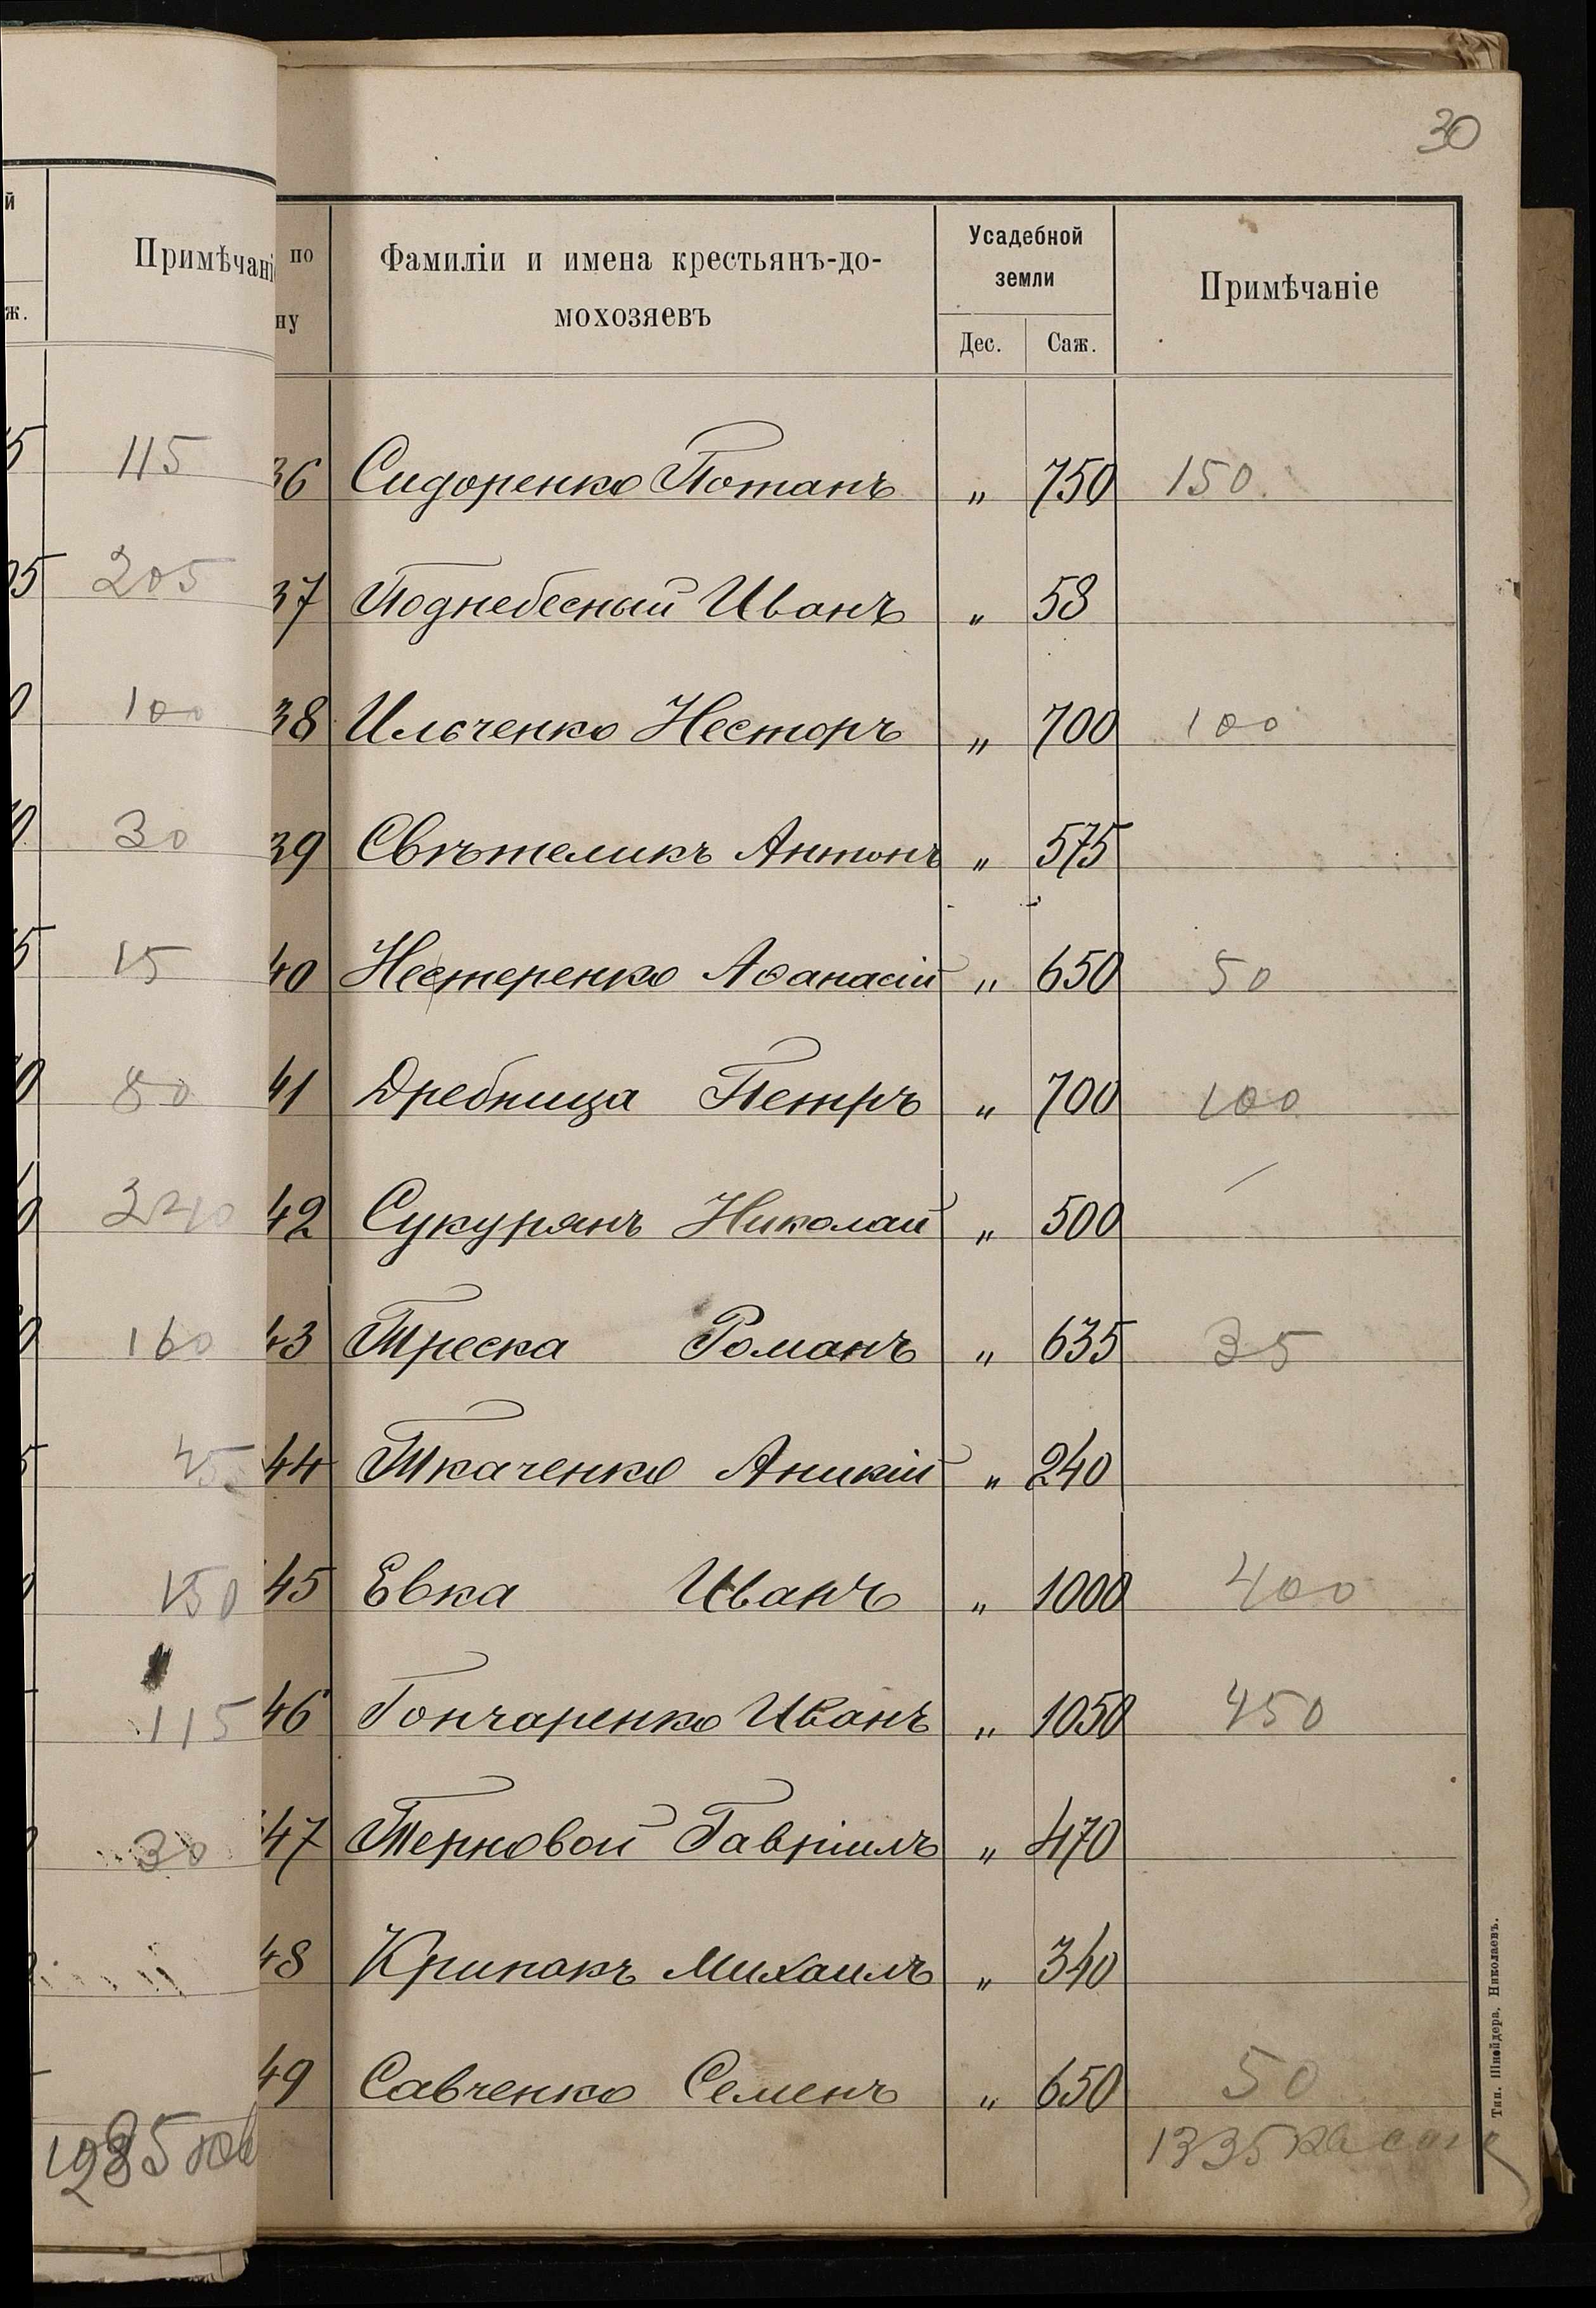 30
й
ж.
Примѣчані
115
205
100
30
15
80
240
160
150
115
30
по
ну
Фамиліи и имена крестьянъ-до-
мохозяевъ
Усадебной
земли
Дес. Саж.
Примѣчаніе
36 Сидоренко Потапъ " 750 150
37 Поднебесный Иванъ " 58
38 Ильченко Несторъ " 700 100
39 Свѣтеликъ Антонъ " 575
40 Нестеренко Аѳанасій " 650 50
41 Дребница Петръ " 700 100
42 Сукурянъ Николай " 500 —
43 Треска Романъ " 635 35
44 Ткаченко Аникій " 240
45 Евка Иванъ " 1000 400
46 Гончаренко Иванъ " 1050 450
47 Терновой Гавріилъ " 470
48 Крипакъ Михаилъ " 340
49 Савченко Семенъ " 650 50
1335 кв саж
Тип. Шнейдера, Николаевъ.